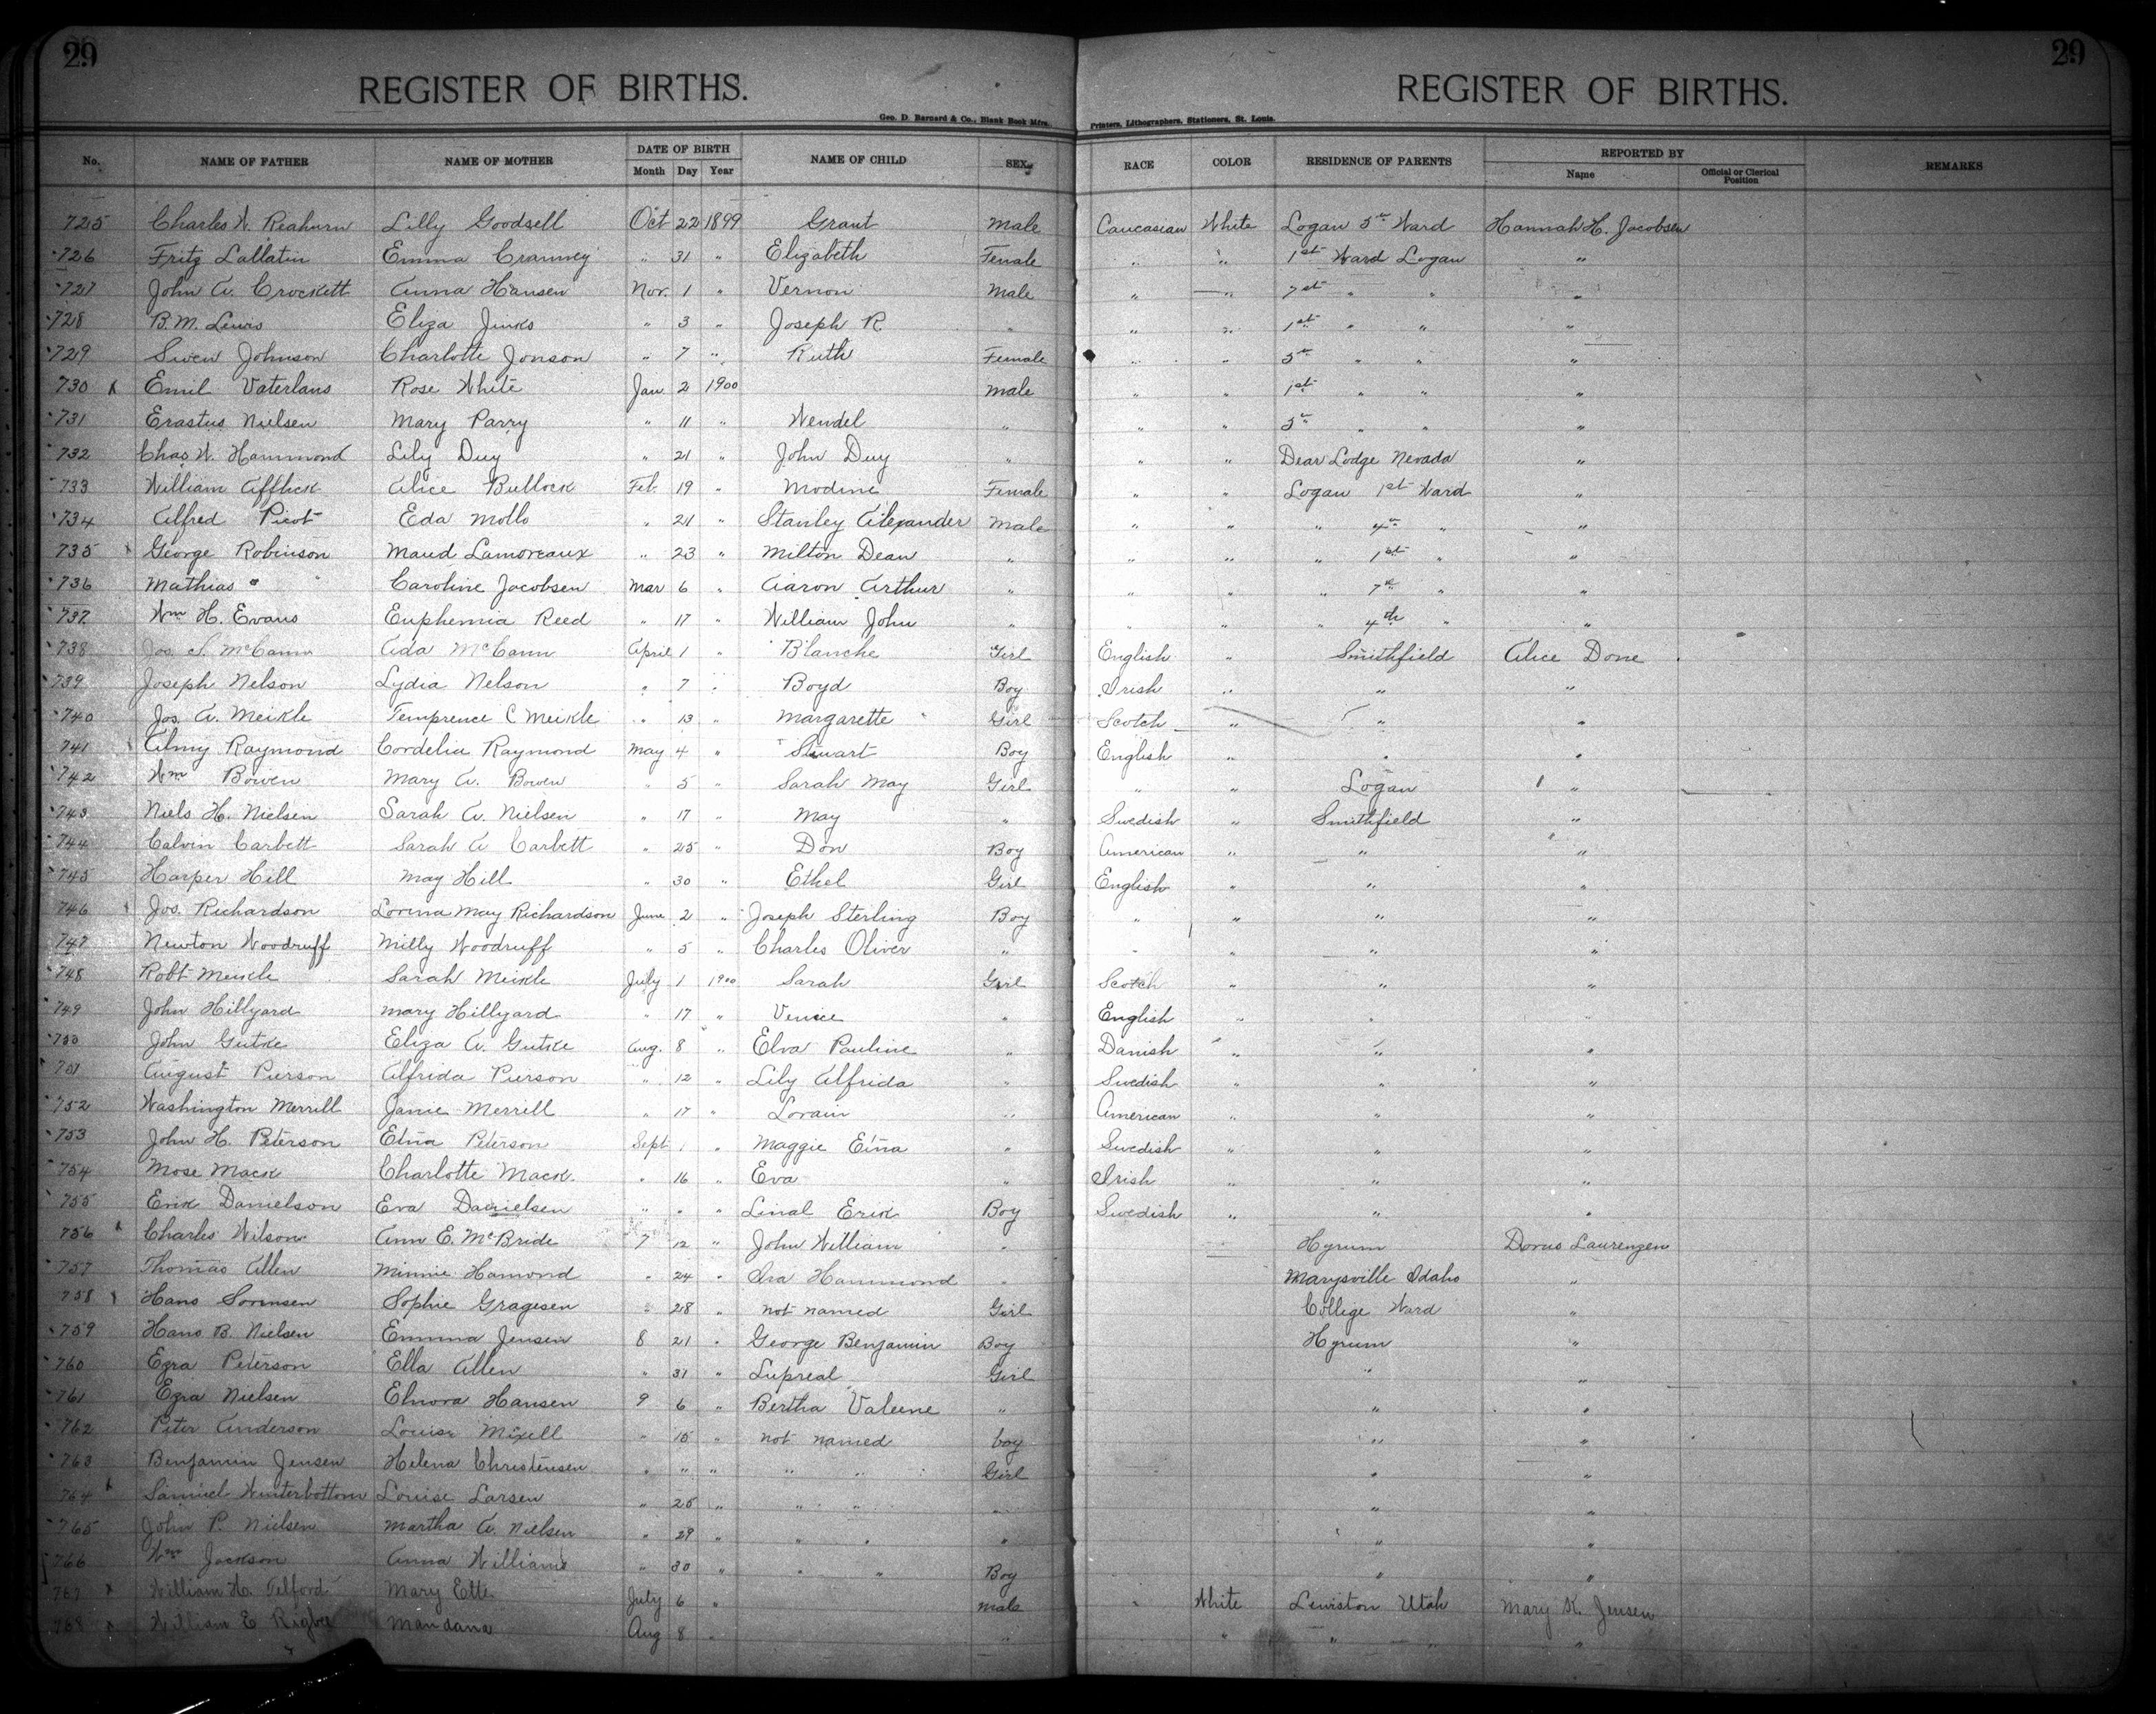 29
29
REGISTER OF BIRTHS.
REGISTER OF BIRTHS.
Geo. D. Barnard & Co., Blank Book Mfrs.
Printers, Lithographers, Stationers, St. Louis.
No. NAME OF FATHER NAME OF MOTHER DATE OF BIRTH NAME OF CHILD SEX RACE COLOR RESIDENCE OF PARENTS REPORTED BY REMARKS
Month Day Year Name Official or Clerical Position
725 Charles W. Lilly Goodsell Oct 22 1899 Grant Male Caucasian White Logan 5th Ward Hannah H. Jacobsen
726 Fritz Lallatin Emma Cranney " 31 " Elizabeth Female " " 1st Ward Logan "
727 John A. Crockett Anna Hansen Nov. 1 " Vernon Male " " 7st " " "
728 B.M. Lewis Eliza Jinks " 3 " Joseph R. " " " 1st " " "
729 Swen Johnson Charlotte Jonson " 7 " Ruth Female " " 5th " " "
730 x Emil Vaterlaus Rose White Jan. 2 1900 Male " " 1st " " "
731 Erastus Nielsen Mary Parry " 11 " Wendel " " " 5th " " "
732 Chas. W. Hammond Lily Duy " 21 " John Duy " " " Dear Lodge Nevada "
733 William Affleck Alice Bullock Feb. 19 " Modine Female " " Logan 1st Ward "
734 Alfred Picot Eda Mollo " 21 " Stanley Alexander Male " " " 4th " "
735 x George Robinson Maud Lamoreaux " 23 " Milton Dean " " " " 1st " "
736 Mathias " " Caroline Jacobsen Mar 6 " Aaron Arthur " " " " 7th " "
737 Wm H. Evans Euphemia Reed " 17 " William John " " " " 4th " "
738 Jos. S. McCann Ada McCann April 1 " Blanche Girl English " Smithfield Alice Done
739 Joseph Nelson Lydia Nelson " 7 " Boyd Boy Irish " " "
740 Jos. A. Meikle Temprence C Meikle " 13 " Margarette Girl Scotch " " "
741 Almy Raymond Cordelia Raymond May 4 " Stewart Boy English " " "
742 Wm Bowen Mary A. Bowen " 5 " Sarah May Girl " " Logan "
743 Niels H. Nielsen Sarah A. Nielsen " 17 " May " Swedish " Smithfield "
744 Calvin Carbett Sarah A Carbett " 25 " Don Boy American " " "
745 Harper Hill May Hill " 30 " Ethel Girl English " " "
746 Jos. Richardson Lorena May Richardson June 2 " Joseph Sterling Boy " " " "
747 Newton Woodruff Milly Woodruff " 5 " Charles Oliver " " " " "
748 Robt Meikle Sarah Meikle July 1 1900 Sarah Girl Scotch " " "
749 John Hillyard Mary Hillyard " 17 " Venice " English " " "
750 John Gutke Eliza A. Gutke Aug. 8 " Elva Pauline " Danish " " "
751 August Pierson Alfrida Pierson " 12 " Lily Alfrida " Swedish " " "
752 Washington Merrill Janie Merrill " 17 " Lorain " American " " "
753 John H. Peterson Elna Peterson Sept 1 " Maggie Elna " Swedish " " "
754 Mose Mack Charlotte Mack " 16 " Eva " Irish " " "
755 Erik Danielson Eva Danielsen " " " Linal Erik Boy Swedish " " "
756 x Charles Wilson Ann E. McBride 7 12 " John William " Hyrum Dorus Laurenzen
757 Thomas Allen Minnie Hamond " 24 " Ira Hammond " Marysville Idaho "
758 Hans Sorensen Sophie Gragesen " 28 " not named Girl College Ward "
759 Hans B. Nielsen Emma Jensen 8 21 " George Benjamin Boy Hyrum "
760 Ezra Peterson Ella Allen " 31 " Lupreal Girl " "
761 Ezra Nielsen Elnora Hansen 9 6 " Bertha Valeene " " "
762 Peter Anderson Louise Mixell " 15 " not named boy " "
763 Benjamin Jensen Helena Christensen " " " " " Girl " "
764 x Samuel Winterbottom Louise Larsen " 25 " " " " " "
765 John P. Nielsen Martha A. Nielsen " 29 " " " " " "
766 Wm Jackson Anna Williams " 30 " " " Boy " "
767 x William H. Telford Mary Ette July 6 " Male " White Lewiston Utah Mary K. Jensen
768 x William E Rigbee Mandana Aug 8 " " " " " "